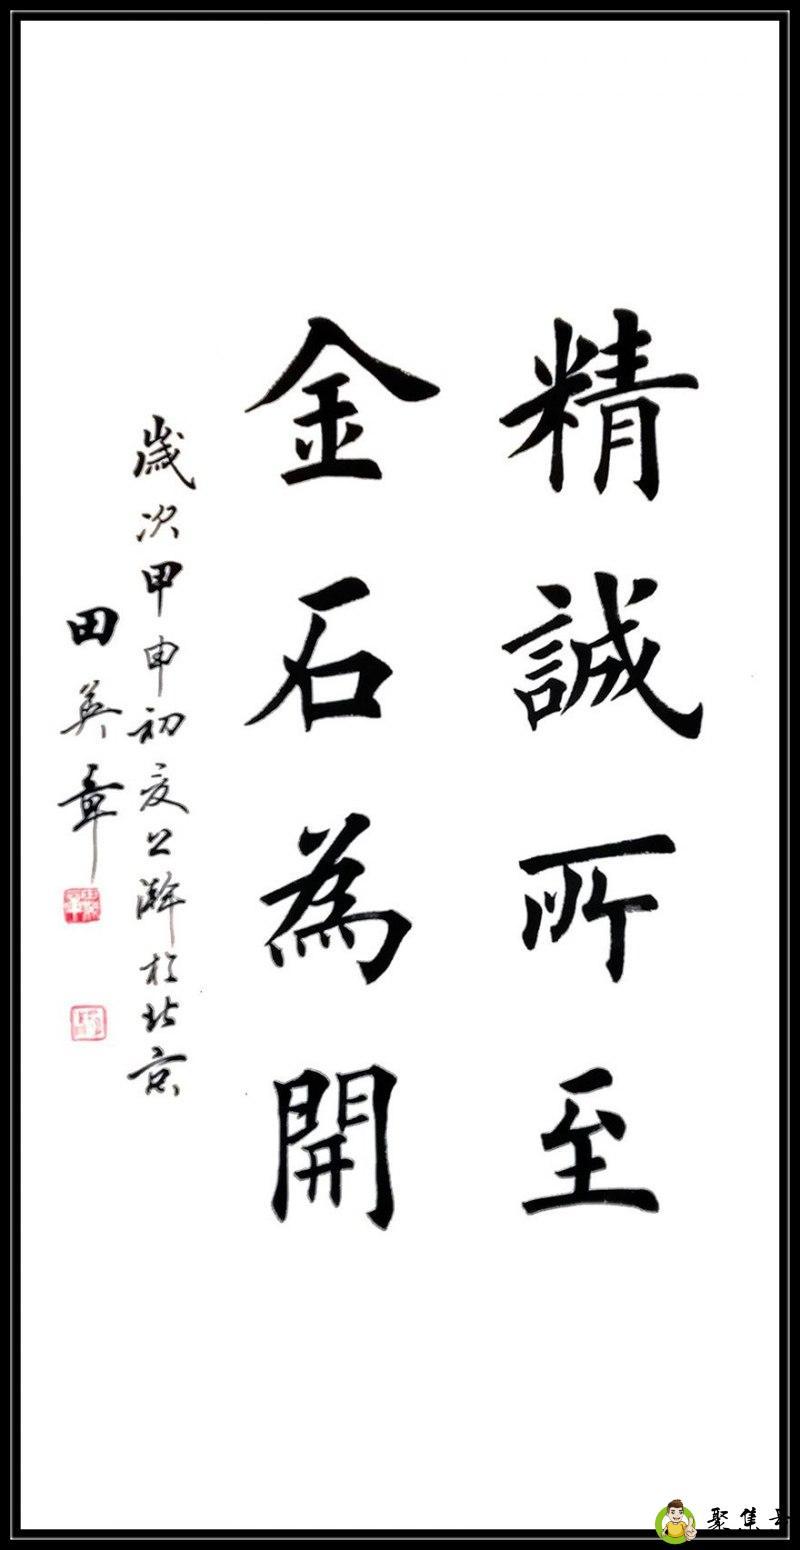 精誠所至
金石為開
歲次甲申初夏公澣於北京
田英章
聚集号